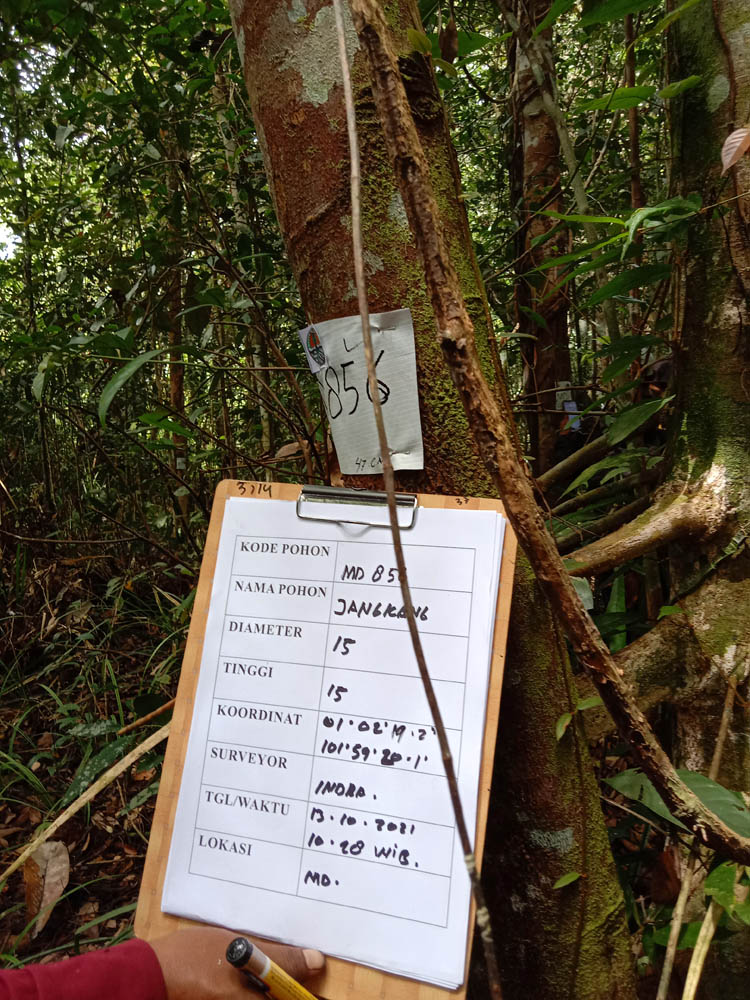 856
47 CM
3714
KODE POHON MD 856
NAMA POHON JANGKANG
DIAMETER 15
TINGGI 15
KOORDINAT 01°02'19.2"
101°59'20.1"
SURVEYOR INDRA.
TGL/WAKTU 13.10.2021
10.28 WIB.
LOKASI MD.